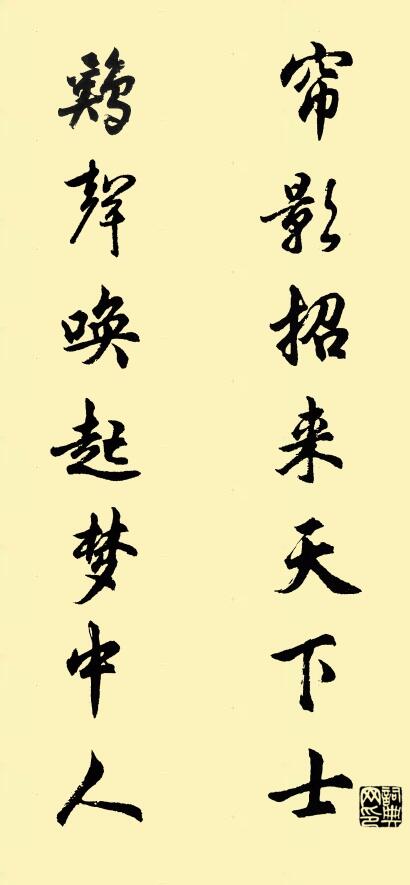 帘影招来天下士
鷄聲唤起梦中人
詞典网印